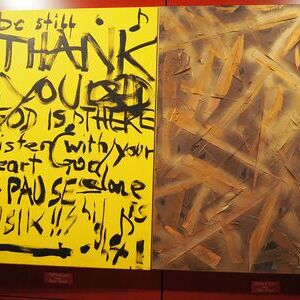 be still
THANK
YOU
GOD IS THERE
listen with your
heart God
PAUSE alone
is